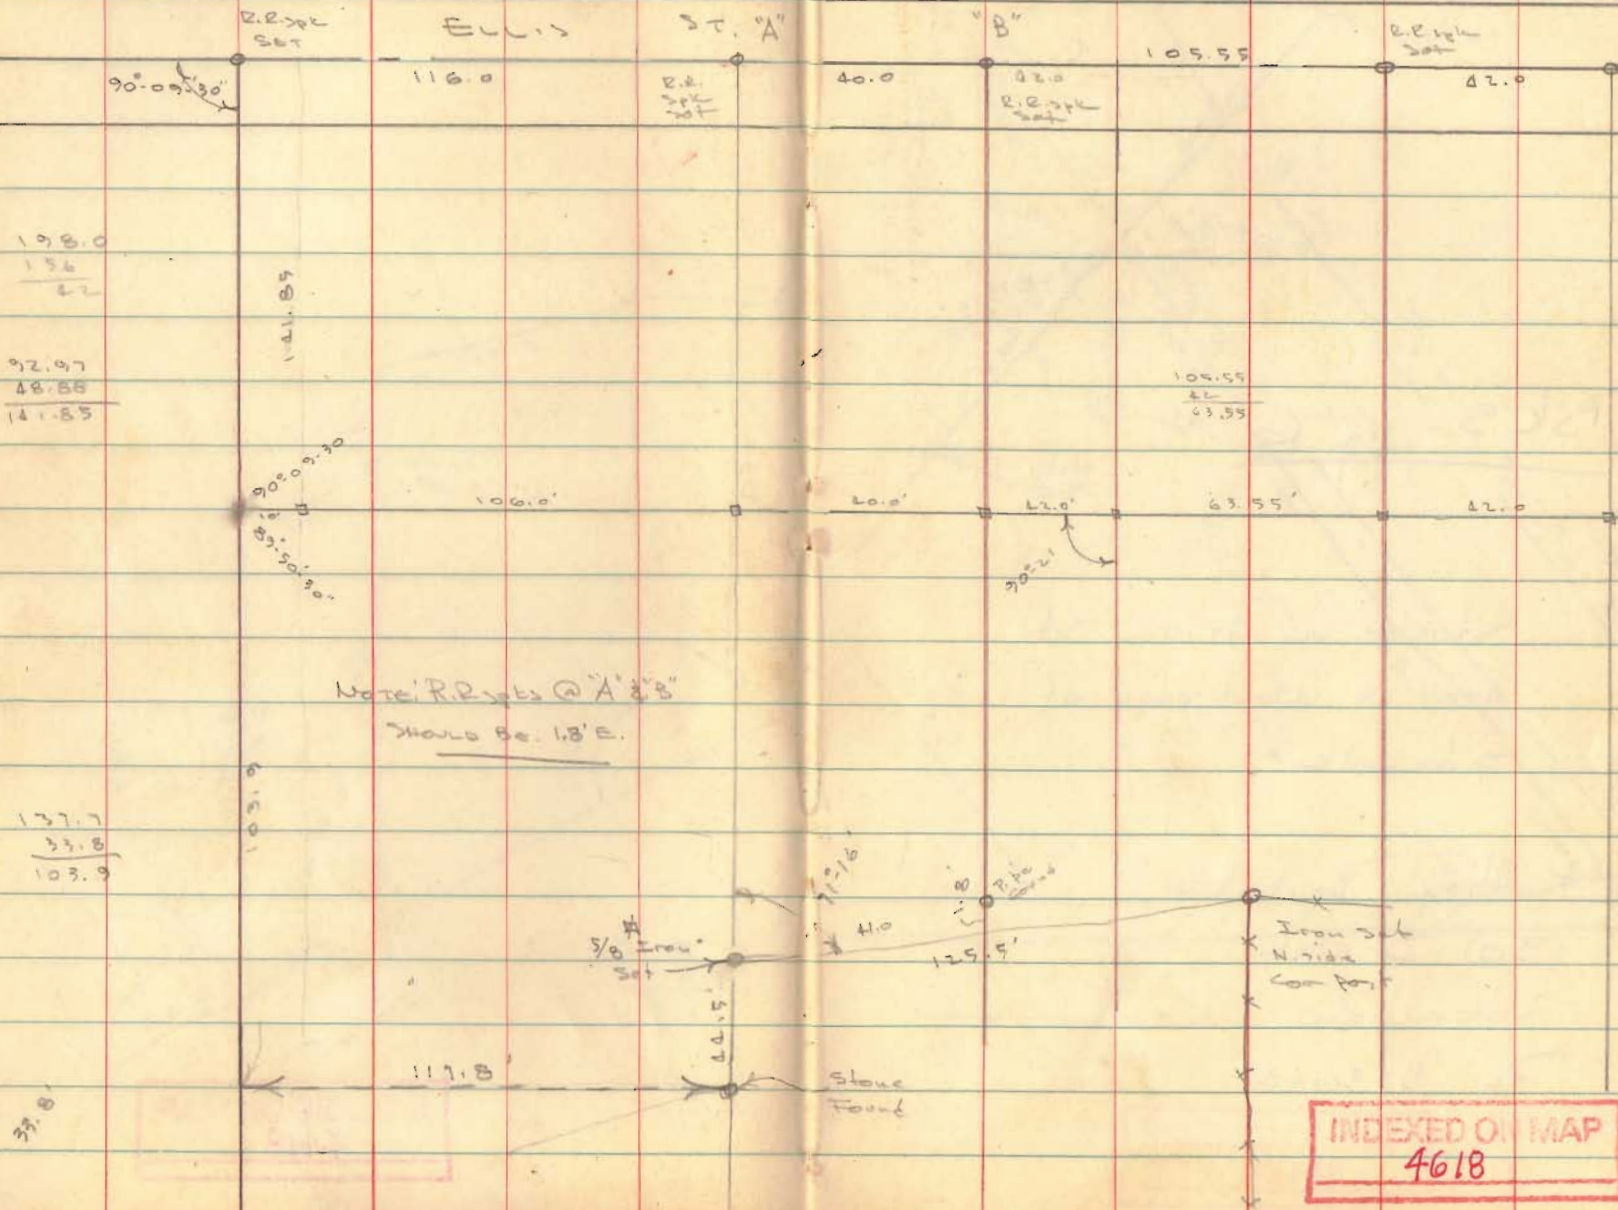 R.R. spk
Set
ELLIS
ST. "A"
"B"
R.R. spk
Set
90°-09'-30"
116.0
R.R.
Spk
Set
40.0
42.0
R.R. spk
Set
105.55
42.0
198.0
156
42
141.85
92.97
48.88
141.85
105.55
42
63.55
90°-09-30
10'
89°-50'-30"
106.0'
40.0'
42.0'
63.55'
42.0
90°-21'
NOTE: R.R spks @ "A" & "B"
SHOULD BE 1.8' E.
103.9
137.7
33.8
103.9
91°-16'
1.8'
Pipe
Found
41.0
125.5'
5/8" Iron
Set
Iron Set
N. side
Cor Post
44.5'
117.8'
Stone
Found
33.8'
INDEXED ON MAP
4618